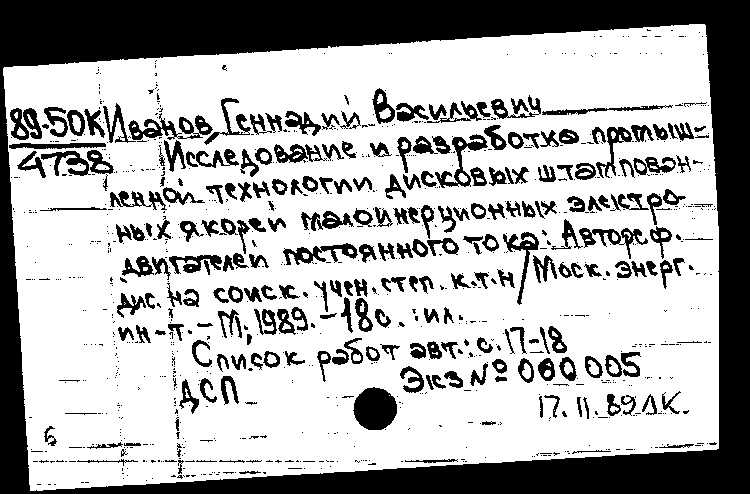 89-50К Иванов, Геннадий Васильевич
4738 Исследование и разработка промыш-
ленной технологии дисковых штампован-
ных якорей малоинерционных электро-
двигателей постоянного тока: Автореф.
дис. на соиск. учен. степ. к.т.н / Моск. энерг.
ин-т. - М., 1989. - 18с. : ил.
Список работ авт.: с. 17-18
ДСП Экз № 060005
17.11.89 ЛК.
6